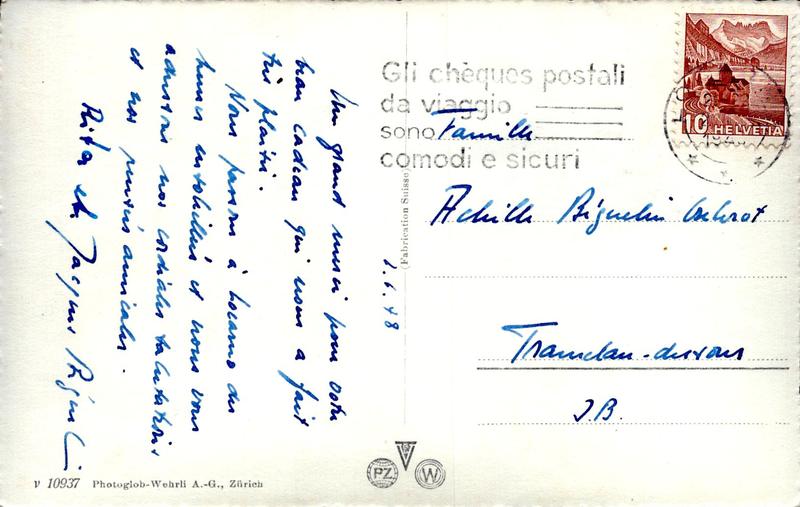 Un grand merci pour votre
beau cadeau qui nous a fait
très plaisir.
Nous passons à Locarno des
heures ensoleillées et nous vous
adressons nos cordiales salutations
et nos pensées amicales.
Rita et Jacques
1.6.48
Gli chèques postali
da viaggio
sono
comodi e sicuri
10 HELVETIA
Famille
Achille
Tramelan-dessous
J.B.
(Fabrication Suisse)
PZ W
v 10937 Photoglob-Wehrli A.-G., Zürich